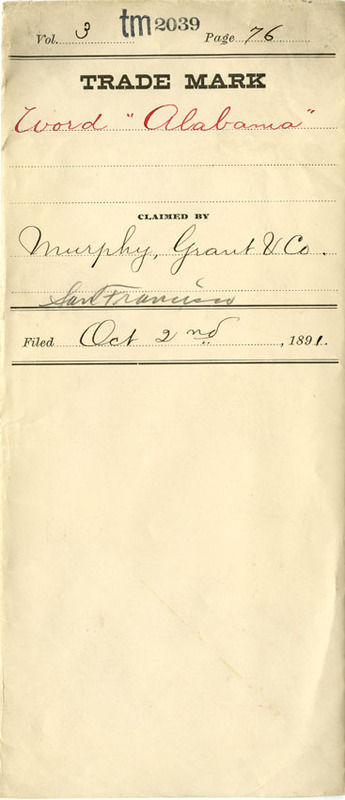 tm 2039
Vol. 3 Page 76
TRADE MARK
Word "Alabama"
CLAIMED BY
Murphy, Grant & Co.
San Francisco
Filed Oct 2nd, 1891.